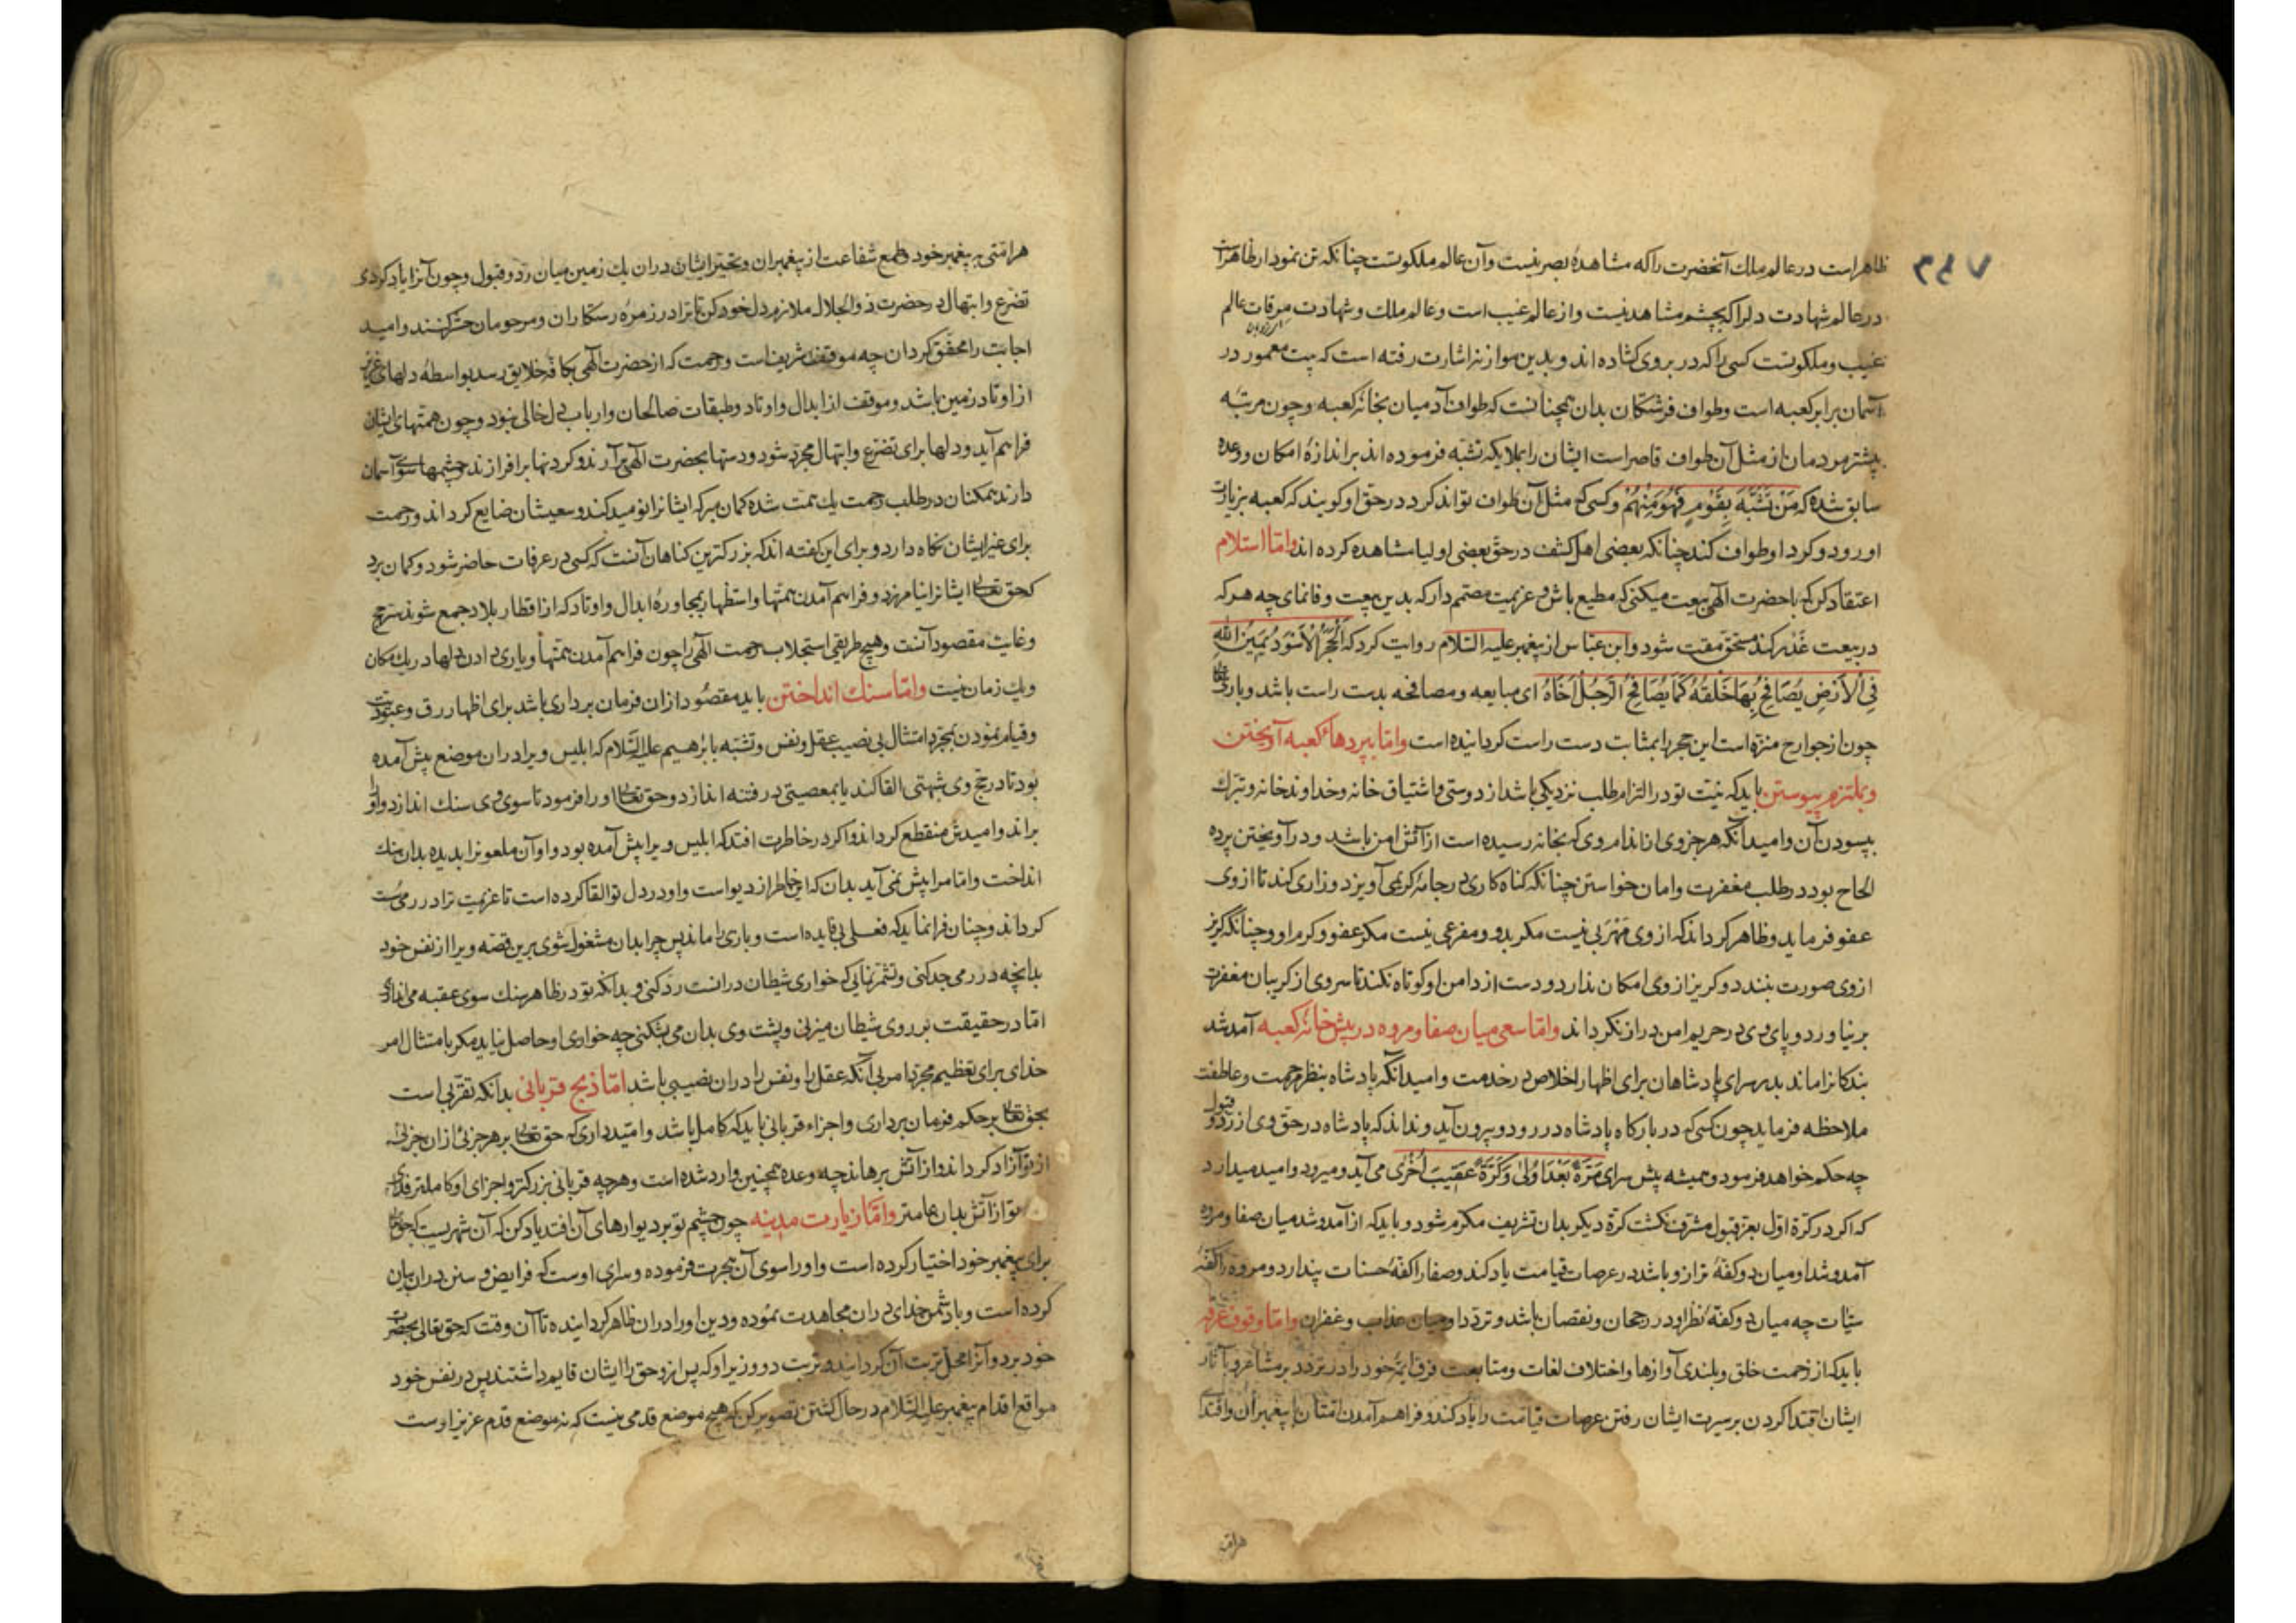 ۳۶۷
ظاهر است در عالم ملك آنحضرت را كه مشاهدهٔ بصر نیست و آن عالم ملكوتست چنانكه تن نمودار ظاهر است
در عالم شهادت دلرا كه بچشم مشاهد نیست و از عالم غیب است و عالم ملك و شهادت مرقات عالم
غیب و ملكوتست كسی را كه در بروی كشاده اند و بدین موازنه اشارت رفته است كه بیت معمور در
آسمان برابر كعبه است و طواف فرشتكان بدان همچنانست كه طواف آدمیان بخانهٔ كعبه و چون مرتبه
بیشتر مردمان از مثل آن طواف قاصر است ایشان را بملایكه تشبه فرموده اند بر اندازهٔ امكان و وعده
سابق شده كه مَنْ تَشَبَّهَ بِقَوْمٍ فَهُوَ مِنْهُمْ و كسی كه مثل آن طواف تواند كرد در حق او كویند كه كعبه بزیارت
او رود و كرد او طواف كند چنانكه بعضی اهل كشف در حق بعضی اولیا مشاهده كرده اند و امّا استلام
اعتقاد كن كه با حضرت الٓهی بیعت میكنی كه مطیع باشی و عزیمت مصمم دار كه بدین بیعت وفا نمای چه هر كه
در بیعت غَدْر كند مستحق مقت شود و ابن عبّاس از پیغمبر علیه السّلام روایت كرد كه اَلْحَجَرُ الْاَسْوَدُ یَمِیْنُ اللّٰهِ
فِی الْاَرْضِ یُصَافِحُ بِهَا خَلْقَهُ كَمَا یُصَافِحُ الرَّجُلُ اَخَاهُ ای مبایعه و مصافحه بدست راست باشد و باری تعالی
چون از جوارح منزه است این حجر را بمثابت دست راست كردانیده است و امّا بپردهای كعبه آویختن
و بملتزم پیوستن باید كه نیت تو در التزام طلب نزدیكی باشد از دوستی و اشتیاق خانه و خداوند خانه و تبرك
بپسودن آن و امید آنكه هر جزوی از اندام وی كه بخانه رسیده است از آتش امن باشد و در آویختن پرده
الحاح بود در طلب مغفرت و امان خواستن چنانكه كناه كاری در جامهٔ كریمی آویزد و زاری كند تا از وی
عفو فرماید و ظاهر كرداند كه از وی مَهْرَبی نیست مكر بدو و مفزعی نیست مكر عفو و كرم او و چنانكه كریز
از وی صورت نبندد و كریز از وی امكان ندارد و دست از دامن او كوتاه نكند تا سر وی از كریبان مغفرت
بر نیاورد و پای وی در حریم امن دراز نكرداند و امّا سعی میان صفا و مروه در پیش خانهٔ كعبه آمد شد
بندكانرا ماند بدر سرای پادشاهان برای اظهار اخلاص در خدمت و امید آنكه پادشاه بنظر رحمت و عاطفت
ملاحظه فرماید چون كسی كه در باركاه پادشاه در رود و بیرون آید و نداند كه پادشاه در حق وی از رد و قبول
چه حكم خواهد فرمود و همیشه پیش سرای مَرَّةً بَعْدَ اُولیٰ وَ كَرَّةً عَقِیبَ اُخْرٰی می آید و میرود و امید میدارد
كه اكر در كرّة اوّل بعز قبول مشرف نكشت كرّة دیكر بدان تشریف مكرم شود و باید كه از آمد و شد میان صفا و مروه
آمد و شد او میان دو كفهٔ ترازو باشد در عرصات قیامت یاد كند و صفا را كفهٔ حسنات پندارد و مروه را كفهٔ
سیّات چه میان دو كفه نظر او در رجحان و نقصان باشد و تردّد او میان عذاب و غفران و امّا وقوف عرفه
باید كه از زحمت خلق و بلندی آوازها و اختلاف لغات و متابعت فرق ایمهٔ خود را در تردد بر مشاعر و بآثار
ایشان اقتدا كردن بر سیرت ایشان رفتن عرصات قیامت را یاد كند و فراهم آمدن امّتان با پیغمبران و اقتدای
هر امتی
هر امّتی به پیغمبر خود و طمع شفاعت از پیغمبران و تحیّر ایشان در ان یك زمین میان ردّ و قبول و چون آنرا یاد كردی
تضرّع و ابتهال در حضرت ذو الجلال ملازم دل خود كن تا ترا در زمرهٔ رستكاران و مرحومان حشر كنند و امید
اجابت را محقّق كردان چه موقف شریف است و رحمت كه از حضرت الٓهی بكافهٔ خلایق رسد بواسطهٔ دلهای عزیز
از اوتاد زمین باشد و موقف از ابدال و اوتاد و طبقات صالحان و ارباب دل خالی نبود و چون همّتهای ایشان
فراهم آید و دلها برای تضرّع و ابتهال مجرّد شود و دستها بحضرت الٓهی برآرند و كردنها برافرازند و چشمها سوی آسمان
دارند همكنان در طلب رحمت یك همّت شده كمان مبر كه ایشانرا نومید كند و سعیشان ضایع كرداند و رحمت
برای غیر ایشان نكاه دارد و برای این كفته اند كه بزركترین كناهان آنست كه كسی در عرفات حاضر شود و كمان برد
كه حق تعالی ایشانرا نیامرزد و فراهم آمدن همّتها و استظهار بمجاورهٔ ابدال و اوتاد كه از اقطار بلاد جمع شوند سرّ حج
و غایت مقصود آنست و هیچ طریقی استجلاب رحمت الٓهی را چون فراهم آمدن همّتها و یاری دادن دلها در یك مكان
و یك زمان نیست و امّا سنك انداختن باید مقصُود از ان فرمان برداری باشد برای اظهار رق و عبودیت
و قیام نمودن بمجرّد امتثال بی نصیب عقل و نفس و تشبّه بابرهیم علیه السّلام كه ابلیس ویرا در ان موضع پیش آمده
بود تا در حج وی شبهتی القا كند یا بمعصیتی در فتنه اندازد و حق تعالی او را فرمود تا سوی وی سنك اندازد و او را
براند و امیدش منقطع كرداند و اكر در خاطرت افتد كه ابلیس ویرا پیش آمده بود و او آن ملعونرا بدیده بدان سنك
انداخت و امّا مرا پیش نمی آید بدان كه این خاطر از دیو است و او در دل تو القا كرده است تا عزیمت ترا در رمی سُست
كرداند و چنان فرا نماید كه فعلی بی فایده است و بازی را ماند پس چرا بدان مشغول شوی برین قصّه ویرا از نفس خود
بدانچه در رمی جد كنی و تشمّر نمایی كه خواری شیطان در انست رد كنی و بدانكه تو در ظاهر سنك سوی عقبه می اندازی
امّا در حقیقت بر روی شیطان میزنی و پشت وی بدان می بشكنی چه خواری او حاصل نیاید مكر بامتثال امر
خدای برای تعظیم مجرّد امر بی آنكه عقل را و نفس را در ان نصیبی باشد امّا ذبح قربانی بدانكه تقرّبی است
بحق تعالی بر حكم فرمان برداری و اجزاء قربانی باید كه كامل باشد و امّید داری كه حق تعالی بر هر جزئی از ان جزئی
از تو آزاد كرداند و از آتش برهاند چه وعده همچنین وارد شده است و هر چه قربانی بزركتر و اجزای او كاملتر فدای
تو از آتش بدان عامتر و امّا زیارت مدینه چون چشم تو بر دیوارهای آن افتد یاد كن كه آن شهریست كه حق تعالی
برای پیغمبر خود اختیار كرده است و او را سوی آن هجرت فرموده و سرای اوست كه فرایض و سنن در ان بیان
كرده است و با دشمن خدای در ان مجاهدت نموده و دین او را در ان ظاهر كردانیده تا آن وقت كه حق تعالی بحضرت
خود برد و آنرا محل تربت آن كردانید و تربت دو وزیر او كه پس از و حق را ایشان قایم داشتند پس در نفس خود
مواقع اقدام پیغمبر علیه السّلام در حال كشتن تصویر كن كه هیچ موضع قدمی نیست كه نه موضع قدم عزیز اوست